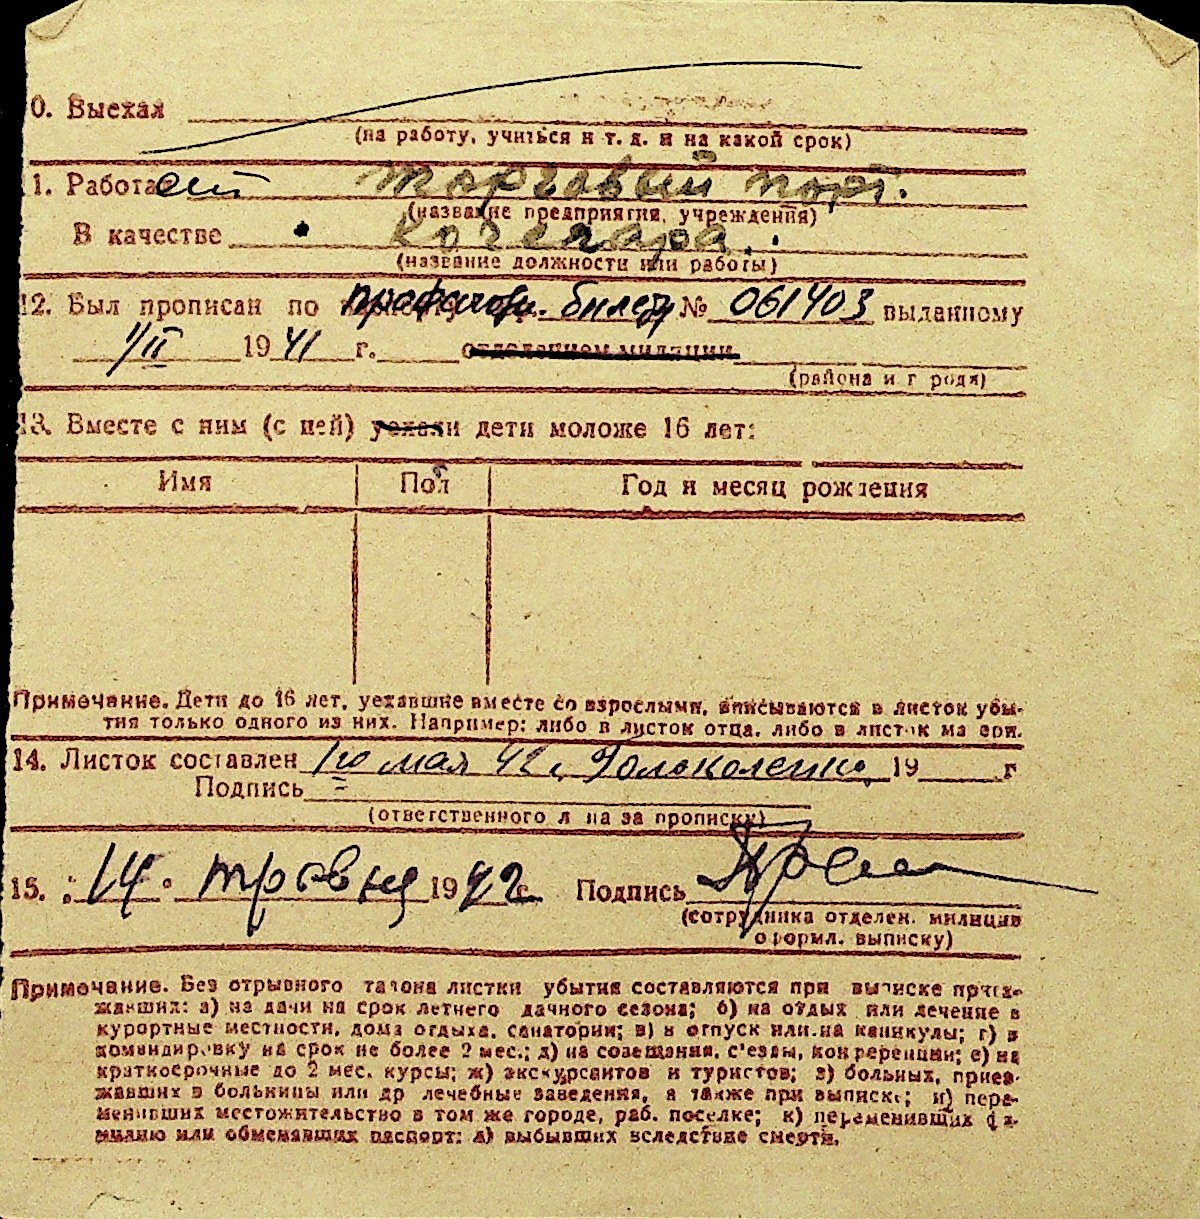 0. Выехал
(на работу, учиться и т. д. и на какой срок)
1. Работает Торговый порт.
(название предприятия, учреждения)
В качестве кочегара.
(название должности или работы)
12. Был прописан по билету № 061403 выданному
1/II 1941 г. отделением милиции
(района и г рода)
13. Вместе с ним (с ней) уехали дети моложе 16 лет:
Имя Пол Год и месяц рождения
Примечание. Дети до 16 лет, уехавшие вместе со взрослыми, вписываются в листок убы-
тия только одного из них. Например: либо в листок отца, либо в листок ма ери.
14. Листок составлен 1го мая 42 г. 19 г
Подпись
(ответственного л ца за прописку)
15. 14 травня 1942 г. Подпись
(сотрудника отделен. милиции
оформл. выписку)
Примечание. Без отрывного талона листки убытия составляются при выписке приез-
жавших: а) на дачи на срок летнего дачного сезона; б) на отдых или лечение в
курортные местности, дома отдыха, санатории; в) в отпуск или на каникулы; г) в
командировку на срок не более 2 мес.; д) на совещания, с'езды, конференции; е) на
краткосрочные до 2 мес. курсы; ж) экскурсантов и туристов; з) больных, приез-
жавших в больницы или др лечебные заведения, а также при выписке; и) пере-
менивших местожительство в том же городе, раб. поселке; к) переменивших фа-
милию или обменявших паспорт; л) выбывших вследствие смерти.